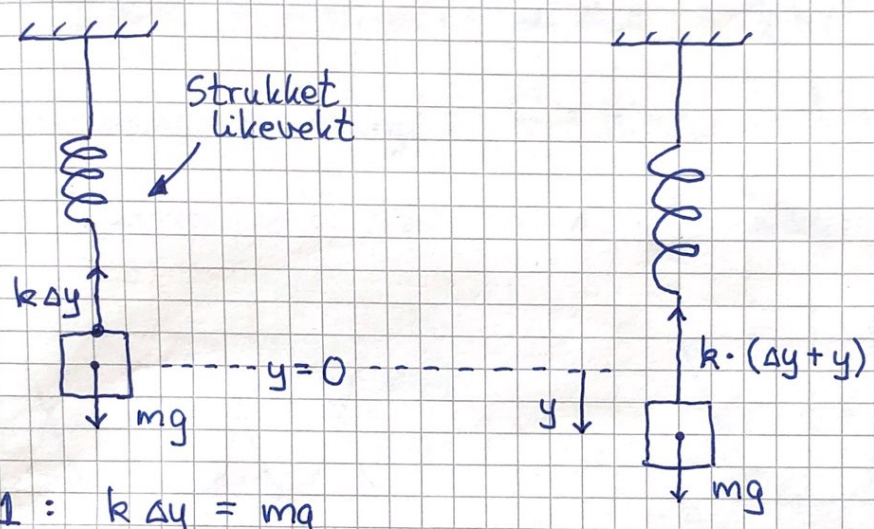 Strukket
likevekt
kΔy
y = 0
k · (Δy + y)
y
mg
mg
1 : k Δy = mg